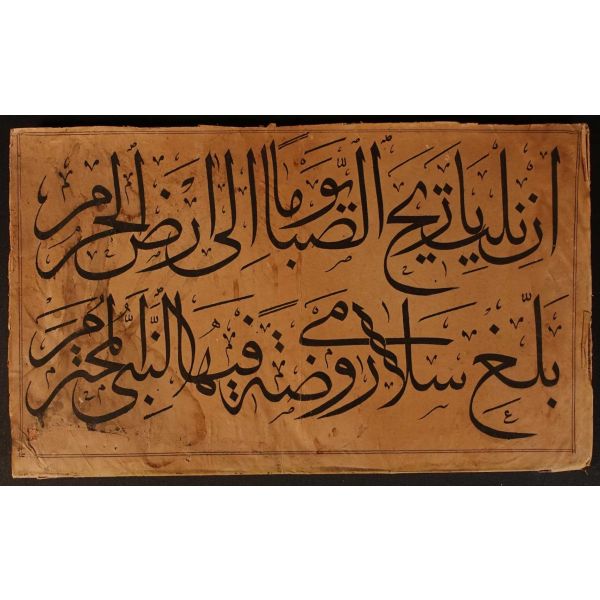 ان نلت ياريح الصبا يوماً الى ارض الحرم
بلّغ سلامي روضةً فيها النّبى المحترم